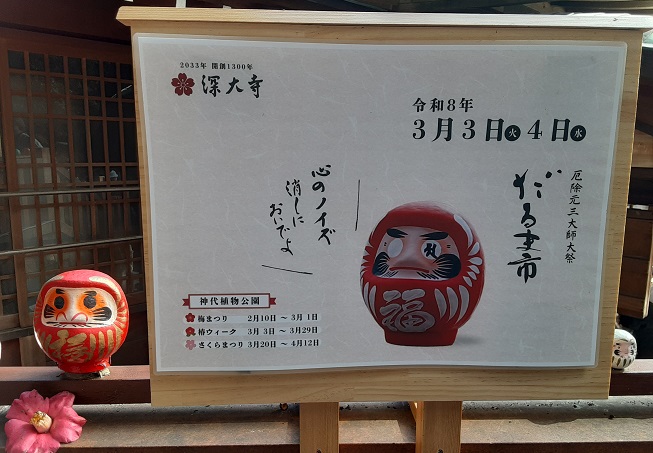 2033年 開創1300年
深大寺
令和8年
3月3日火4日水
厄除元三大師大祭
だるま市
心のノイズ
消しに
おいでよ
福
神代植物公園
梅まつり 2月10日 〜 3月 1日
椿ウィーク 3月 3日 〜 3月29日
さくらまつり 3月20日 〜 4月12日